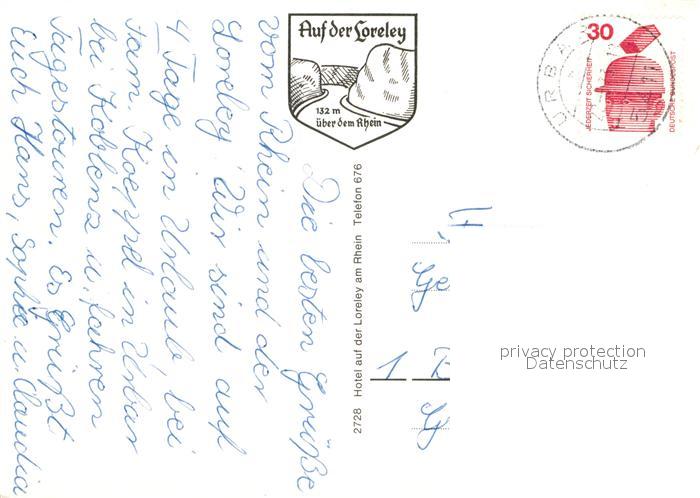 Auf der Loreley
132 m
über dem Rhein
Die besten Grüße
vom Rhein und der
Loreley. Wir sind auf
4 Tage in Urlaub, bei
Fam. Koeppel in Urbar
bei Koblenz u. fahren
Tagestouren. Es Grüßt
Euch Hans, Sophie u. Claudia
2728 Hotel auf der Loreley am Rhein Telefon 676
30
JEDERZEIT SICHERHEIT
DEUTSCHE BUNDESPOST
URBAR
1
privacy protection
Datenschutz